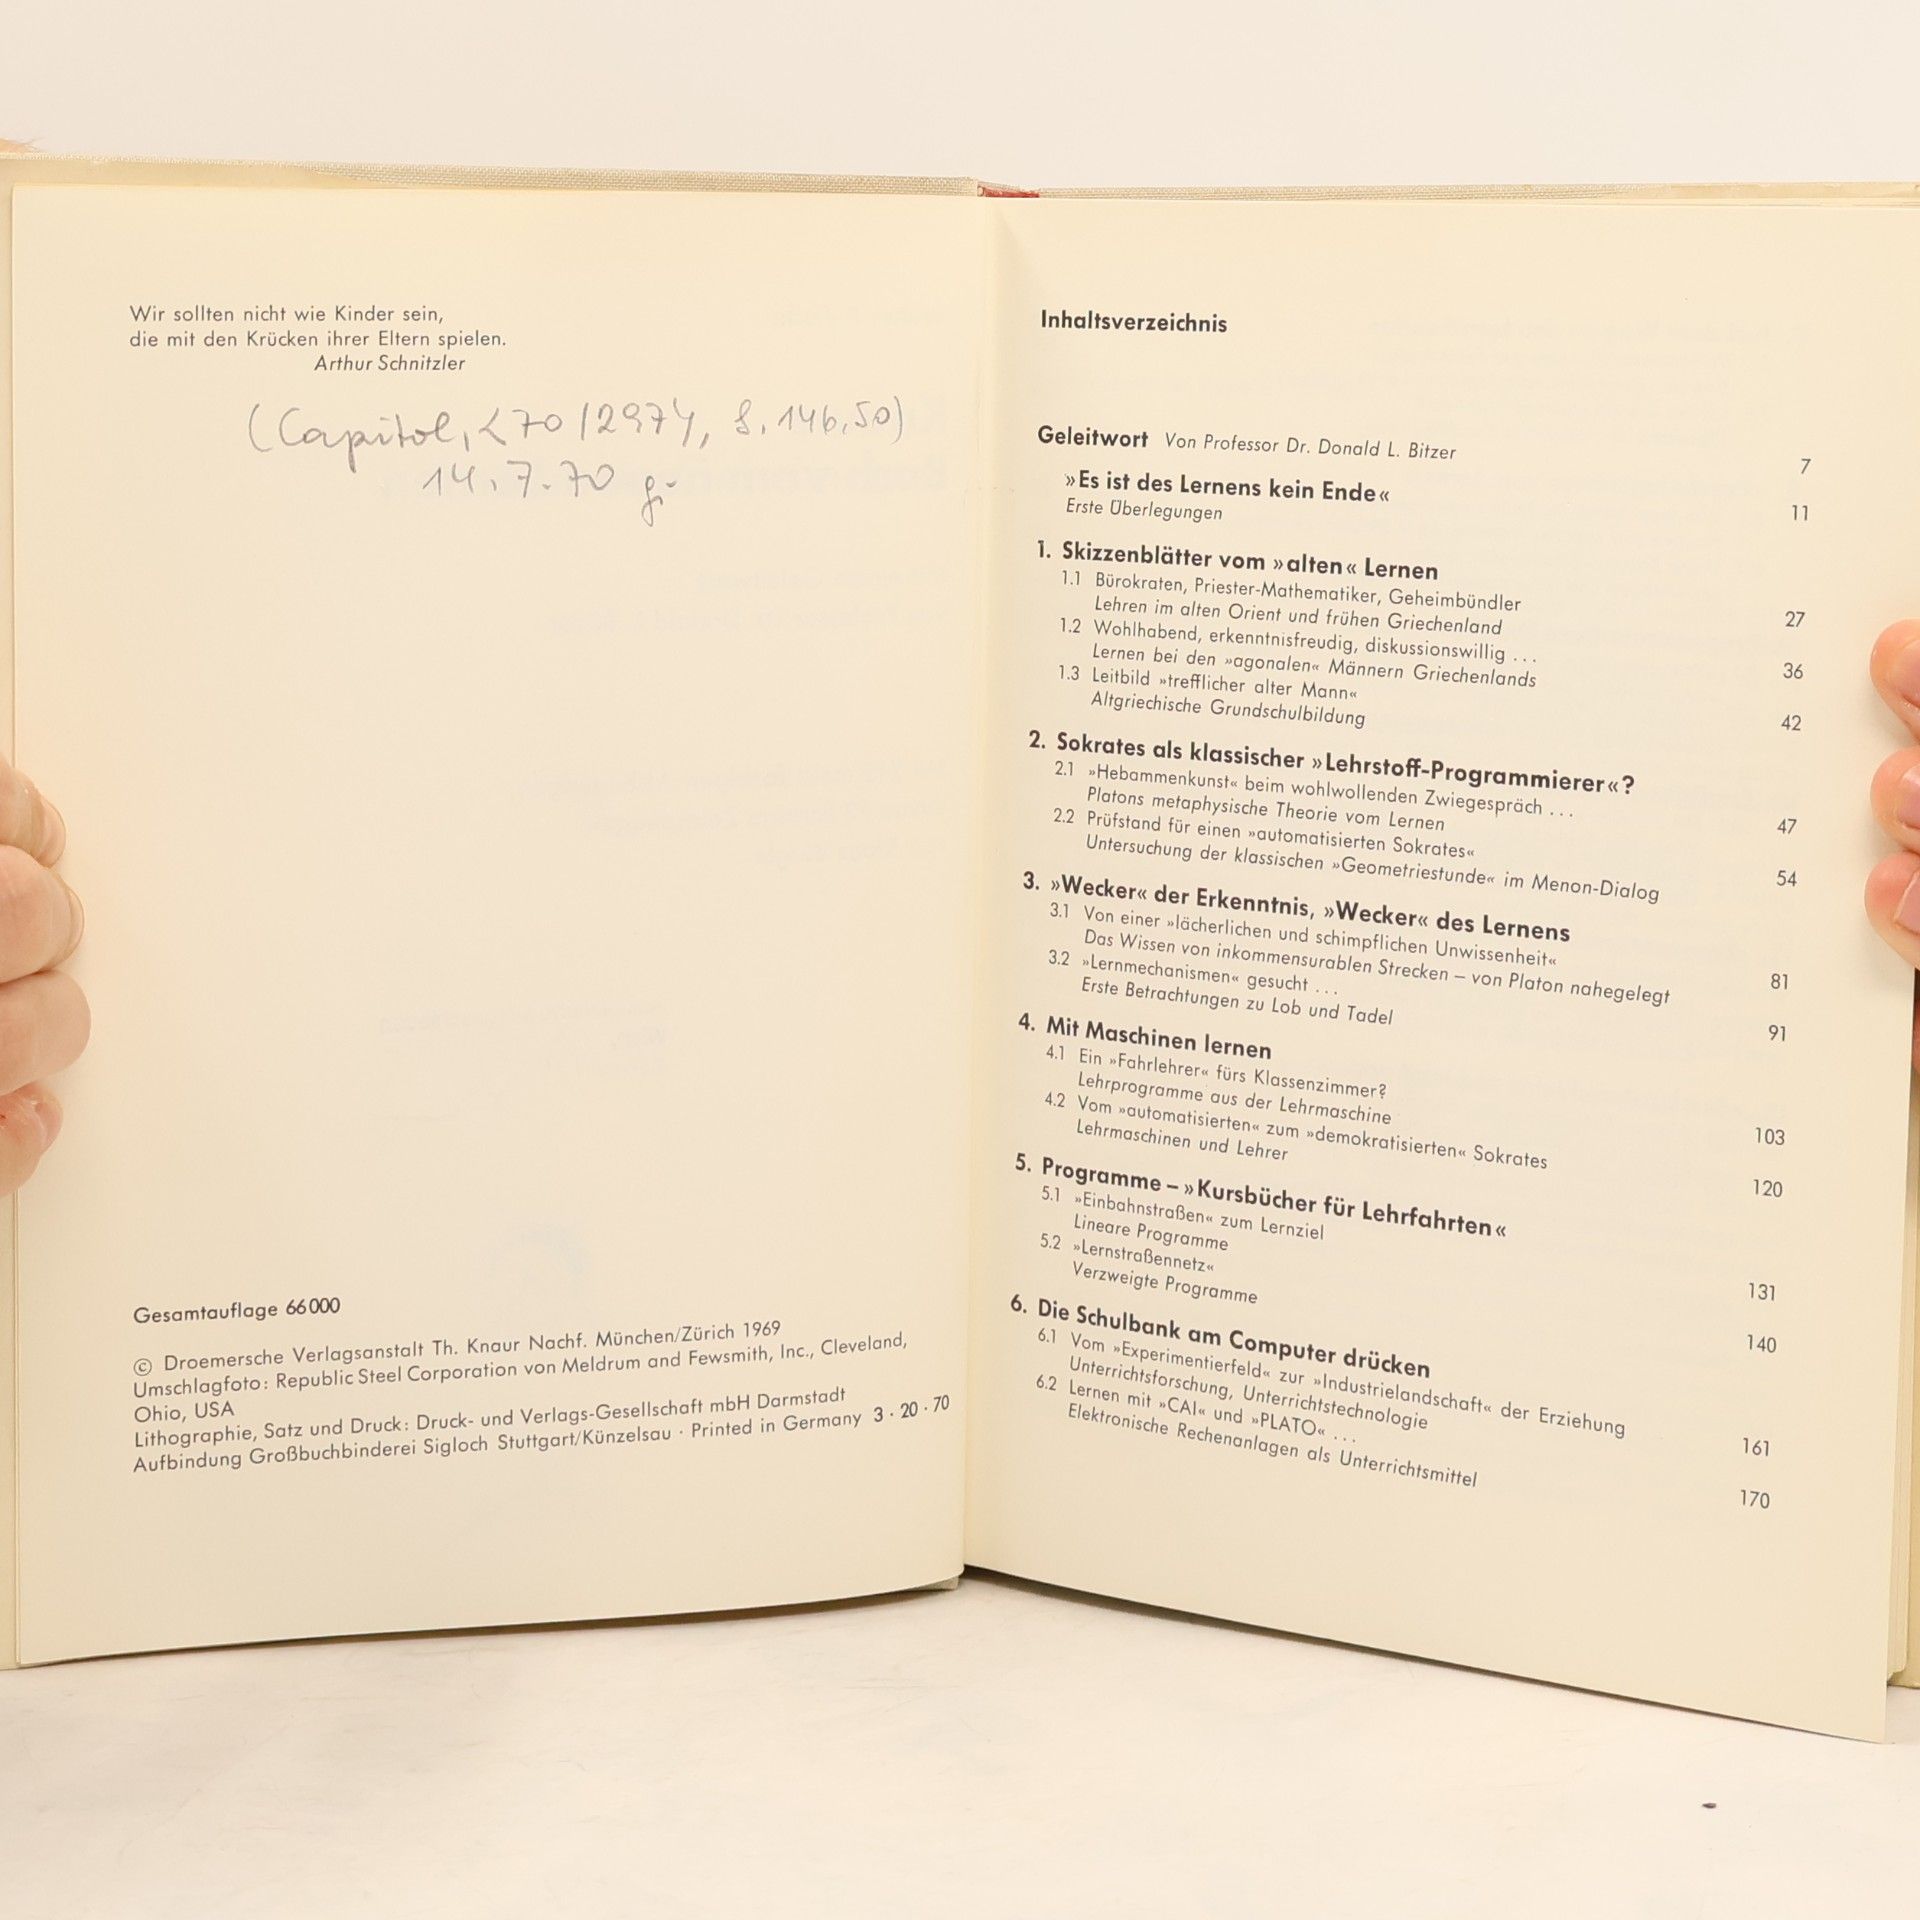 Wir sollten nicht wie Kinder sein,
die mit den Krücken ihrer Eltern spielen.
Arthur Schnitzler
(Capitol, L70/2974, S. 146,50)
14.7.70
Gesamtauflage 66000
© Droemersche Verlagsanstalt Th. Knaur Nachf. München/Zürich 1969
Umschlagfoto: Republic Steel Corporation von Meldrum and Fewsmith, Inc., Cleveland,
Ohio, USA
Lithographie, Satz und Druck: Druck- und Verlags-Gesellschaft mbH Darmstadt
Aufbindung Großbuchbinderei Sigloch Stuttgart/Künzelsau · Printed in Germany 3 · 20 · 70
Inhaltsverzeichnis
Geleitwort Von Professor Dr. Donald L. Bitzer 7
»Es ist des Lernens kein Ende«
Erste Überlegungen 11
1. Skizzenblätter vom »alten« Lernen
1.1 Bürokraten, Priester-Mathematiker, Geheimbündler
Lehren im alten Orient und frühen Griechenland 27
1.2 Wohlhabend, erkenntnisfreudig, diskussionswillig ...
Lernen bei den »agonalen« Männern Griechenlands 36
1.3 Leitbild »trefflicher alter Mann«
Altgriechische Grundschulbildung 42
2. Sokrates als klassischer »Lehrstoff-Programmierer«?
2.1 »Hebammenkunst« beim wohlwollenden Zwiegespräch ...
Platons metaphysische Theorie vom Lernen 47
2.2 Prüfstand für einen »automatisierten Sokrates«
Untersuchung der klassischen »Geometriestunde« im Menon-Dialog 54
3. »Wecker« der Erkenntnis, »Wecker« des Lernens
3.1 Von einer »lächerlichen und schimpflichen Unwissenheit«
Das Wissen von inkommensurablen Strecken – von Platon nahegelegt 81
3.2 »Lernmechanismen« gesucht ...
Erste Betrachtungen zu Lob und Tadel 91
4. Mit Maschinen lernen
4.1 Ein »Fahrlehrer« fürs Klassenzimmer?
Lehrprogramme aus der Lehrmaschine 103
4.2 Vom »automatisierten« zum »demokratisierten« Sokrates
Lehrmaschinen und Lehrer 120
5. Programme – »Kursbücher für Lehrfahrten«
5.1 »Einbahnstraßen« zum Lernziel
Lineare Programme 131
5.2 »Lernstraßennetz«
Verzweigte Programme 140
6. Die Schulbank am Computer drücken
6.1 Vom »Experimentierfeld« zur »Industrielandschaft« der Erziehung
Unterrichtsforschung, Unterrichtstechnologie 161
6.2 Lernen mit »CAI« und »PLATO« ...
Elektronische Rechenanlagen als Unterrichtsmittel 170